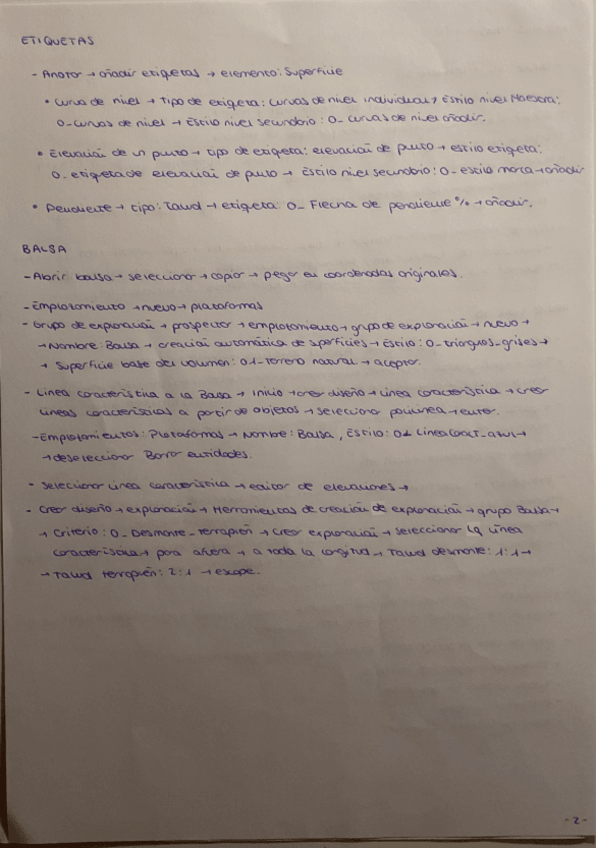 ETIQUETAS
- Anotar → añadir etiquetas → elemento: Superficie
• Curva de nivel → Tipo de etiqueta: Curvas de nivel individual, Estilo nivel Maestra:
0_curvas de nivel → Estilo nivel secundario: 0_ curvas de nivel añadir.
• Elevación de un punto → tipo de etiqueta: elevación de punto → estilo etiqueta:
0_ etiqueta de elevación de punto → Estilo nivel secundario: 0_estilo marca → añadir
• Pendiente → tipo: Talud → etiqueta: 0_ Flecha de pendiente % → añadir.
BALSA
- Abrir balsa → seleccionar → copiar → pegar en coordenadas originales.
- Emplazamiento → nuevo → plataformas
- Grupo de explanación → prospector → emplazamiento → grupo de explanación → nuevo →
→ Nombre: Balsa → creación automática de superficies → Estilo: 0_triangulos_grises →
→ Superficie base del volumen: 01-Terreno natural → aceptar.
- Linea caracteristica a la Balsa → Inicio → crear diseño → Linea caracteristica → crear
lineas caracteristicas a partir de objetos → seleccionar polilinea → enter.
- Emplazamientos: Plataformas → Nombre: Balsa, Estilo:
→ deseleccionar Borrar entidades.
- Seleccionar linea caracteristica → editor de elevaciones →
- Crear diseño → explanación → Herramientas de creación de explanación → grupo Balsa →
→ Criterio: 0_ Desmonte_Terraplén → Crear explanación → seleccionar la linea
caracteristica → para afuera → a toda la longitud → Talud desmonte: 1:1 →
→ Talud terraplén: 2:1 → escape.
-2-